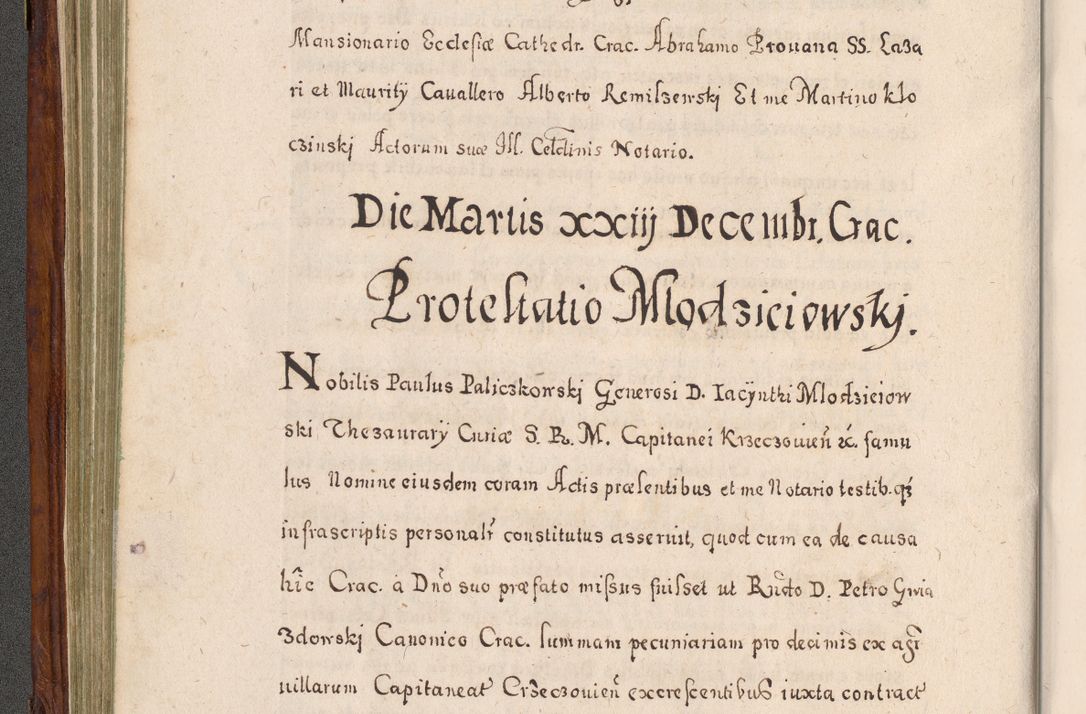 Mansionario Ecclesiæ Cathedr. Crac. Abrahamo Prouana SS. Laza
ri et Maurity Cauallero Alberto Remiszewski Et me Martino Klo
czinski Actorum suæ Ill. Celdinis Notario.
Die Martis xxiij Decembr. Crac.
Protestatio Mlodzieiowskj.
Nobilis Paulus Paliczkowskj Generosi D. Iacÿnthi Mlodzieiow
ski Thezaurarÿ Curiæ S. R. M. Capitanei Krzeczouieñ &c. famu
lus Nomine eiusdem coram Actis præsentibus et me Notario testib. qz
infrascriptis personalr constitutus asseruit, quod cum ea de causa
hic Crac. a Dño suo præfato missus fuisset ut Rndo D. Petro Gwia
zdowskj Canonico Crac. summam pecuniariam pro decimis ex agr
uillarum Capitaneat Crzeczouień excrescentibus iuxta contract